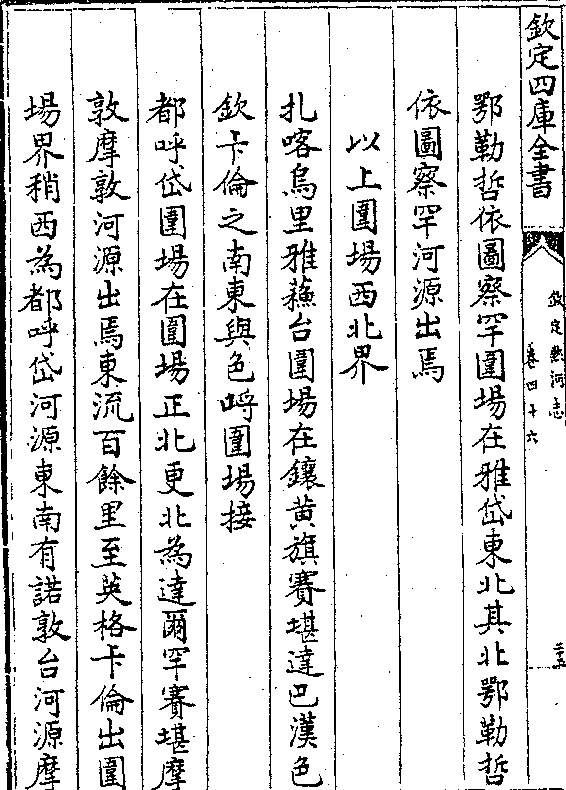 欽定四庫全書
欽定熱河志
卷四十六
二十五
鄂勒哲依圖察罕圍場在雅岱東北其北鄂勒哲
依圖察罕河源出焉
以上圍場西北界
扎喀烏里雅蘇台圍場在鑲黄旗賽堪達巴漢色
欽卡倫之南東與色㖸圍場接
都呼岱圍場在圍場正北更北為達爾罕賽堪摩
敦摩敦河源出焉東流百餘里至英格卡倫出圍
場界稍西為都呼岱河源東南有諾敦台河源摩